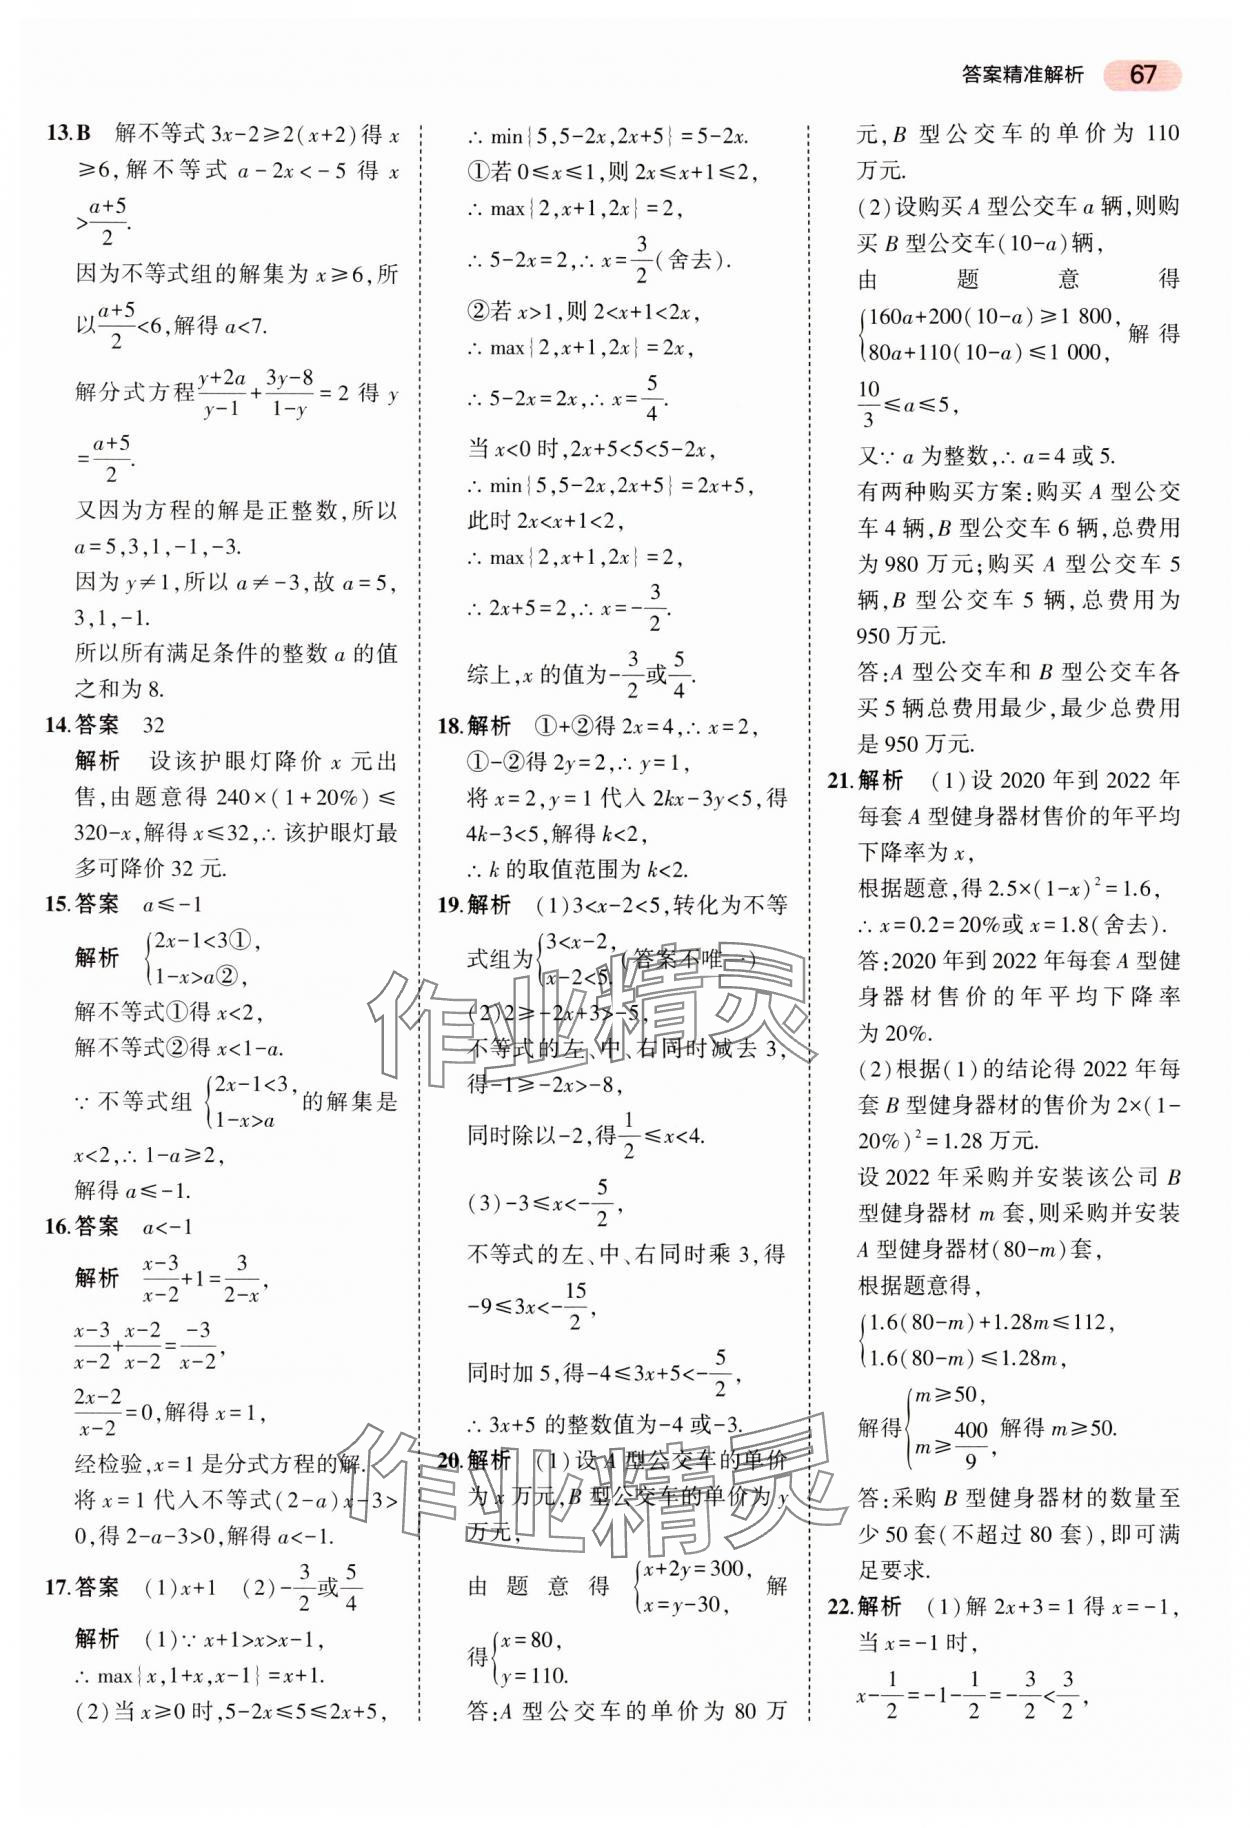 答案精准解析 67
13.B 解不等式 3x-2≥2(x+2)得 x
≥6,解不等式 a-2x<-5 得 x
>\frac{a+5}{2}.
因为不等式组的解集为 x≥6,所
以\frac{a+5}{2}<6,解得 a<7.
解分式方程\frac{y+2a}{y-1}+\frac{3y-8}{1-y}=2 得 y
=\frac{a+5}{2}.
又因为方程的解是正整数,所以
a=5,3,1,-1,-3.
因为 y≠1,所以 a≠-3,故 a=5,
3,1,-1.
所以所有满足条件的整数 a 的值
之和为 8.
14.答案 32
解析 设该护眼灯降价 x 元出
售,由题意得 240×(1+20%)≤
320-x,解得 x≤32,∴该护眼灯最
多可降价 32 元.
15.答案 a≤-1
解析 {2x-1<3①,
1-x>a②,
解不等式①得 x<2,
解不等式②得 x<1-a.
∵不等式组 {2x-1<3,
1-x>a 的解集是
x<2,∴1-a≥2,
解得 a≤-1.
16.答案 a<-1
解析 \frac{x-3}{x-2}+1=\frac{3}{2-x},
\frac{x-3}{x-2}+\frac{x-2}{x-2}=\frac{-3}{x-2},
\frac{2x-2}{x-2}=0,解得 x=1,
经检验,x=1 是分式方程的解.
将 x=1 代入不等式(2-a)x-3>
0,得 2-a-3>0,解得 a<-1.
17.答案 (1)x+1 (2)-\frac{3}{2}或\frac{5}{4}
解析 (1)∵x+1>x>x-1,
∴max{x,1+x,x-1}=x+1.
(2)当 x≥0 时,5-2x≤5≤2x+5,
∴min{5,5-2x,2x+5}=5-2x.
①若 0≤x≤1,则 2x≤x+1≤2,
∴max{2,x+1,2x}=2,
∴5-2x=2,∴x=\frac{3}{2}(舍去).
②若 x>1,则 2<x+1<2x,
∴max{2,x+1,2x}=2x,
∴5-2x=2x,∴x=\frac{5}{4}.
当 x<0 时,2x+5<5<5-2x,
∴min{5,5-2x,2x+5}=2x+5,
此时 2x<x+1<2,
∴max{2,x+1,2x}=2,
∴2x+5=2,∴x=-\frac{3}{2}.
综上,x 的值为-\frac{3}{2}或\frac{5}{4}.
18.解析 ①+②得 2x=4,∴x=2,
①-②得 2y=2,∴y=1,
将 x=2,y=1 代入 2kx-3y<5,得
4k-3<5,解得 k<2,
∴k 的取值范围为 k<2.
19.解析 (1)3<x-2<5,转化为不等
式组为{3<x-2,
x-2<5.(答案不唯一)
(2)2≥-2x+3>-5,
不等式的左、中、右同时减去 3,
得-1≥-2x>-8,
同时除以-2,得\frac{1}{2}≤x<4.
(3)-3≤x<-\frac{5}{2},
不等式的左、中、右同时乘 3,得
-9≤3x<-\frac{15}{2},
同时加 5,得-4≤3x+5<-\frac{5}{2},
∴3x+5 的整数值为-4 或-3.
20.解析 (1)设 A 型公交车的单价
为 x 万元,B 型公交车的单价为 y
万元,
由题意得 {x+2y=300,
x=y-30, 解
得{x=80,
y=110.
答:A 型公交车的单价为 80 万
元,B 型公交车的单价为 110
万元.
(2)设购买 A 型公交车 a 辆,则购
买 B 型公交车(10-a)辆,
由题意得
{160a+200(10-a)≥1 800,
80a+110(10-a)≤1 000, 解得
\frac{10}{3}≤a≤5,
又∵a 为整数,∴a=4 或 5.
有两种购买方案:购买 A 型公交
车 4 辆,B 型公交车 6 辆,总费用
为 980 万元;购买 A 型公交车 5
辆,B 型公交车 5 辆,总费用为
950 万元.
答:A 型公交车和 B 型公交车各
买 5 辆总费用最少,最少总费用
是 950 万元.
21.解析 (1)设 2020 年到 2022 年
每套 A 型健身器材售价的年平均
下降率为 x,
根据题意,得 2.5×(1-x)²=1.6,
∴x=0.2=20%或 x=1.8(舍去).
答:2020 年到 2022 年每套 A 型健
身器材售价的年平均下降率
为 20%.
(2)根据(1)的结论得 2022 年每
套 B 型健身器材的售价为 2×(1-
20%)²=1.28 万元.
设 2022 年采购并安装该公司 B
型健身器材 m 套,则采购并安装
A 型健身器材(80-m)套,
根据题意得,
{1.6(80-m)+1.28m≤112,
1.6(80-m)≤1.28m,
解得{m≥50,
m≥\frac{400}{9}, 解得 m≥50.
答:采购 B 型健身器材的数量至
少 50 套(不超过 80 套),即可满
足要求.
22.解析 (1)解 2x+3=1 得 x=-1,
当 x=-1 时,
x-\frac{1}{2}=-1-\frac{1}{2}=-\frac{3}{2}<\frac{3}{2},
作业精灵
作业精灵